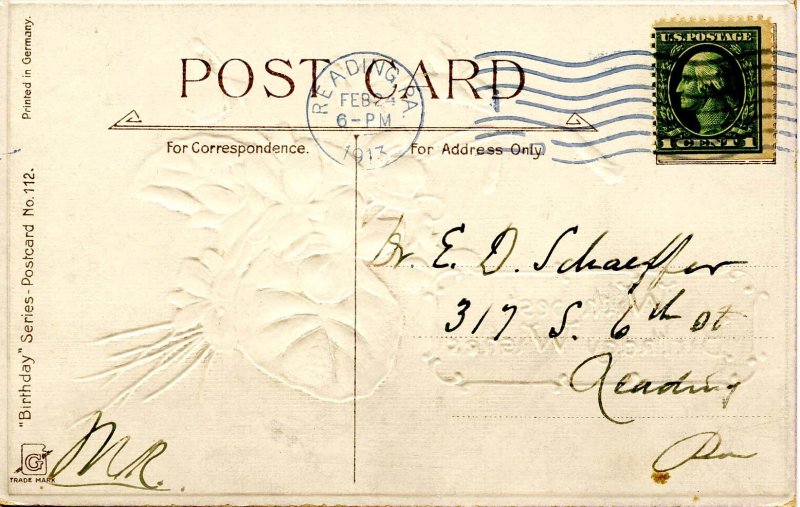 POST CARD
READING, PA.
FEB 24
6-PM
1913
U.S. POSTAGE
1 CENT 1
For Correspondence.
For Address Only.
Printed in Germany.
"Birthday" Series - Postcard No. 112.
G
TRADE MARK
M.R.
Dr. E. D. Schaeffer
317 S. 6th St
Reading
Pa